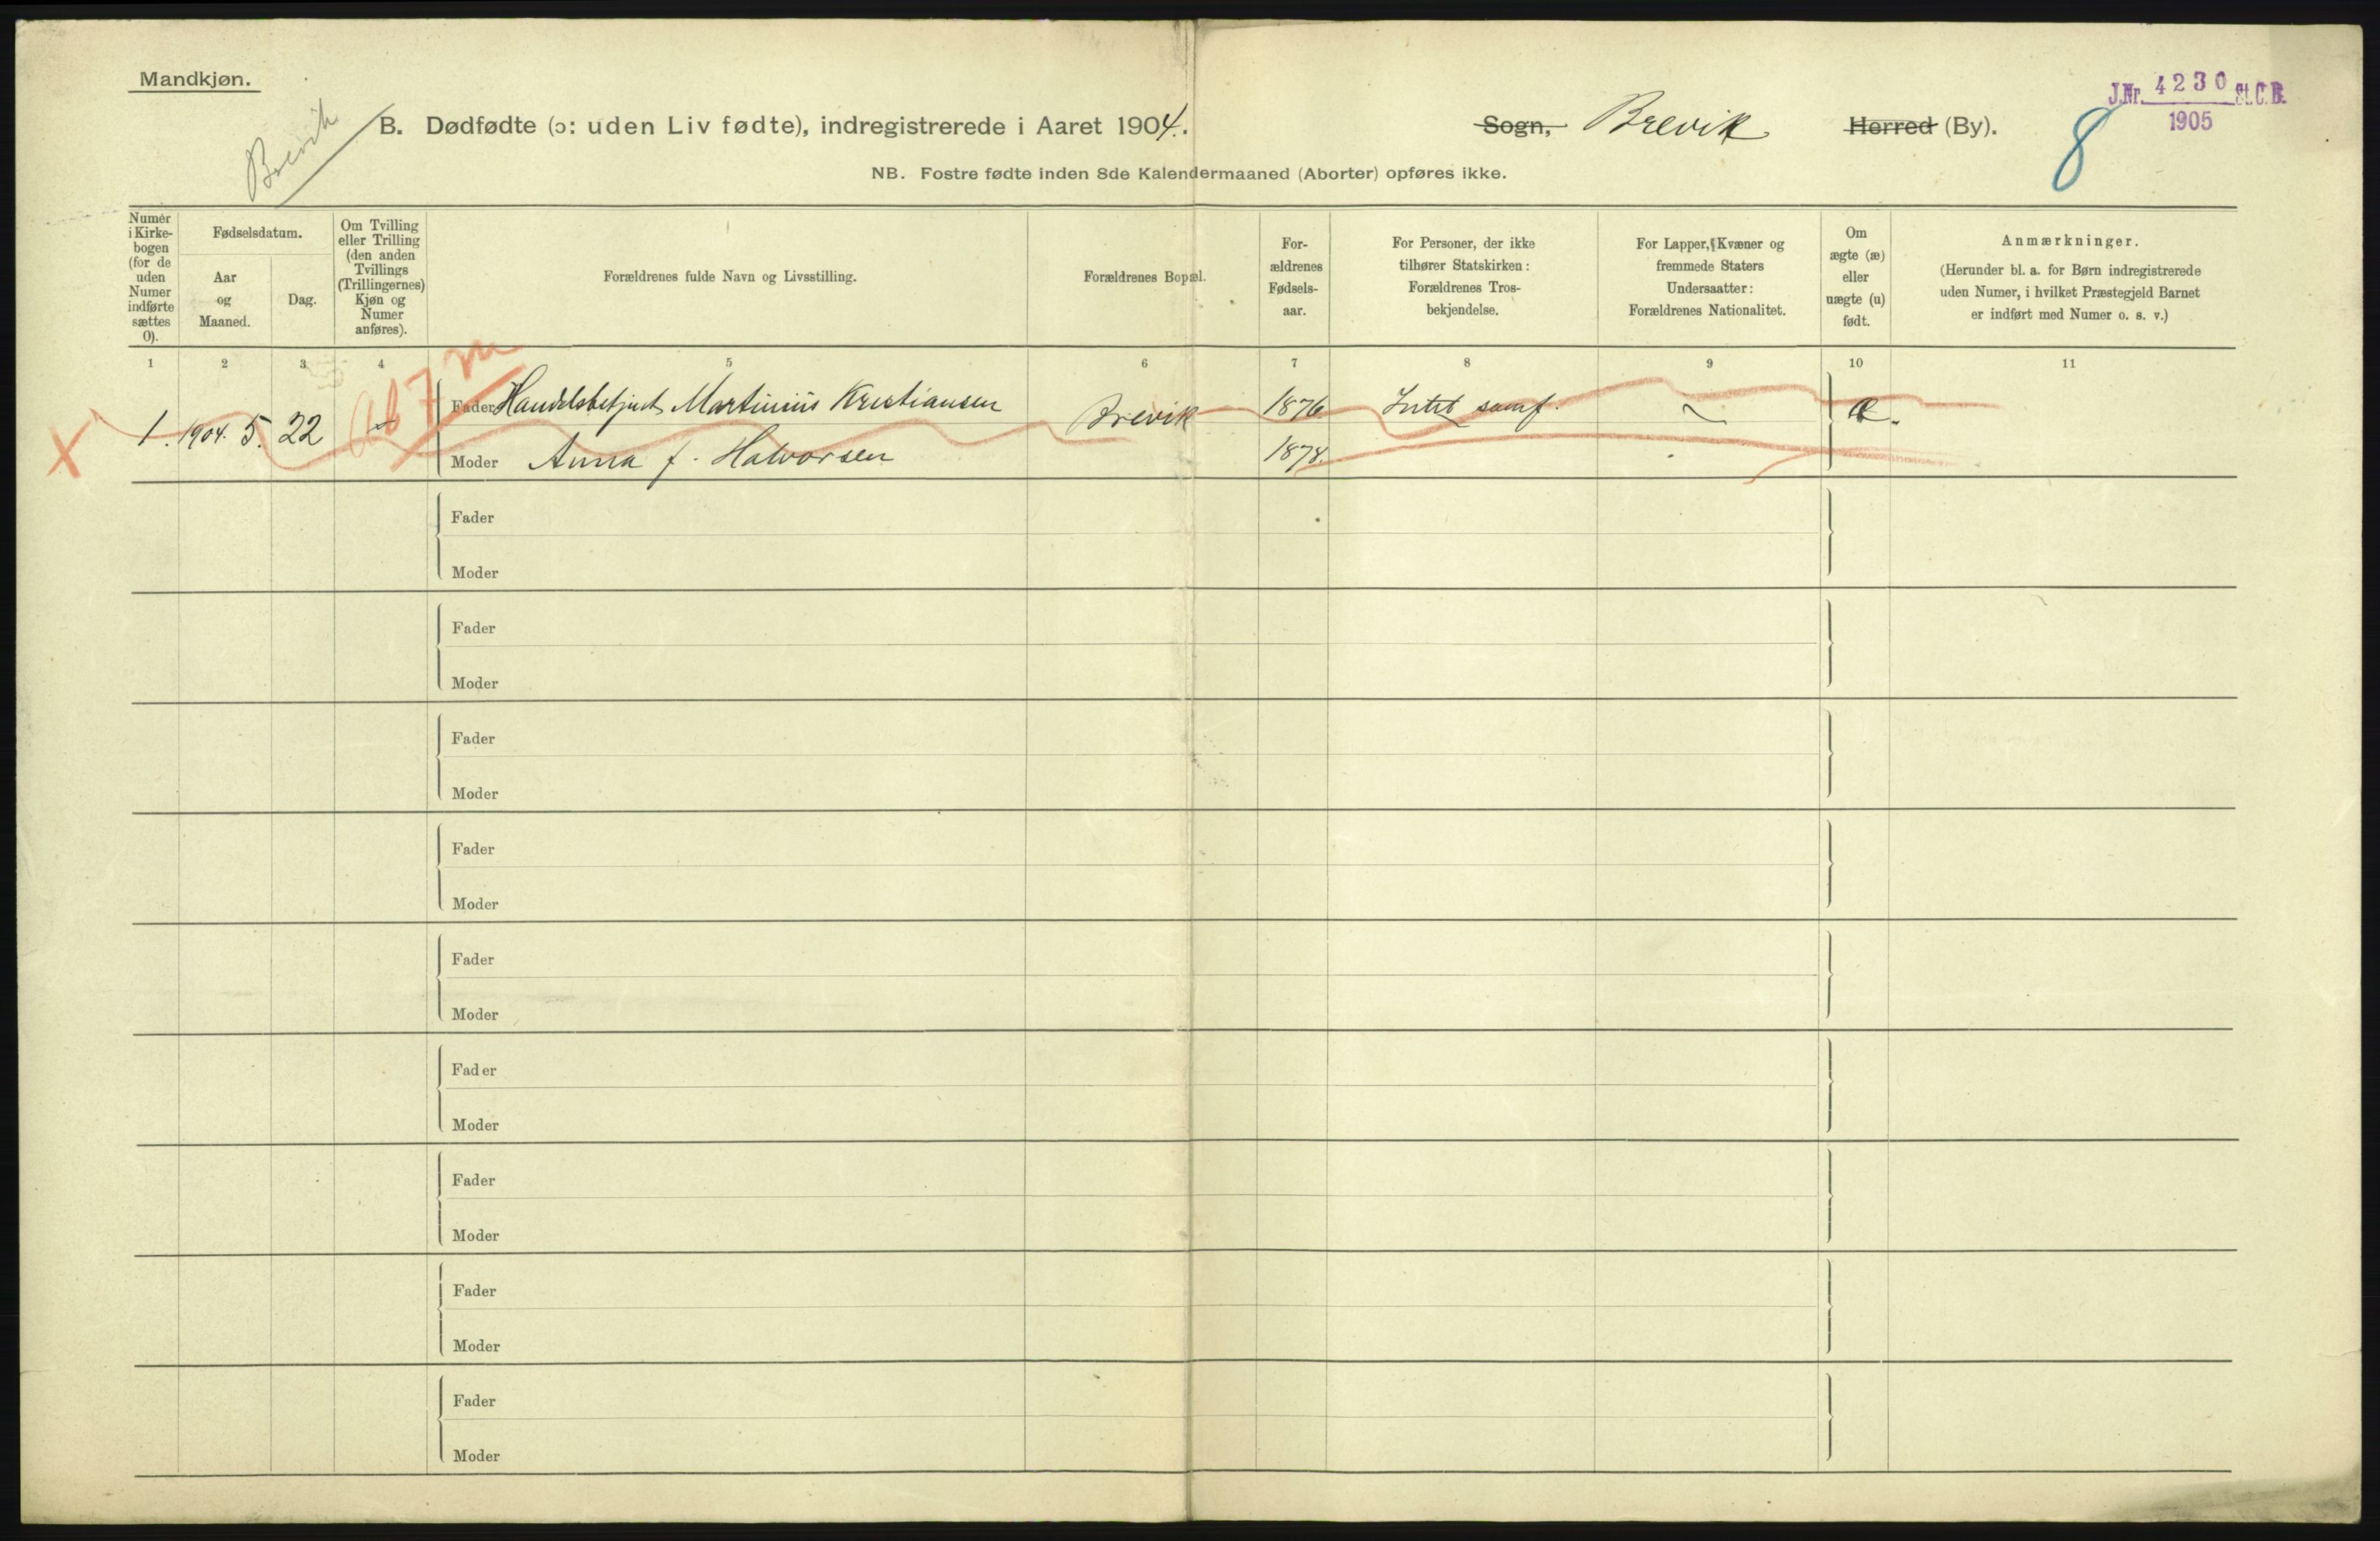 Mandkjøn.
Brevik
B. Dødfødte (ɔ: uden Liv fødte), indregistrerede i Aaret 1904.
Sogn, Brevik Herred (By).
J.Nr. 4230 St.C.B.
1905
8
NB. Fostre fødte inden 8de Kalendermaaned (Aborter) opføres ikke.
Numer i Kirke-bogen (for de uden Numer indførte sættes 0).
Fødselsdatum.
Aar og Maaned.
Dag.
Om Tvilling eller Trilling (den anden Tvillings (Trillingernes) Kjøn og Numer anføres).
Forældrenes fulde Navn og Livsstilling.
Forældrenes Bopæl.
For-ældrenes Fødsels-aar.
For Personer, der ikke tilhører Statskirken: Forældrenes Tros-bekjendelse.
For Lapper, Kvæner og fremmede Staters Undersaatter: Forældrenes Nationalitet.
Om ægte (æ) eller uægte (u) født.
Anmærkninger.
(Herunder bl. a. for Børn indregistrerede uden Numer, i hvilket Præstegjeld Barnet er indført med Numer o. s. v.)
1 2 3 4 5 6 7 8 9 10 11
X 1. 1904. 5. 22 Fader Handelsbetjent Martinius Kristiansen Brevik 1876 Intet samf. æ.
Moder Anna f. Halvorsen 1878.
Fader
Moder
Fader
Moder
Fader
Moder
Fader
Moder
Fader
Moder
Fader
Moder
Fader
Moder
Fader
Moder
Fader
Moder